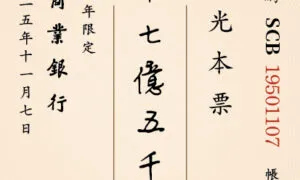 SCB 19501107 帳
光本票
七億五千
年限定
商業銀行
一五年十一月七日